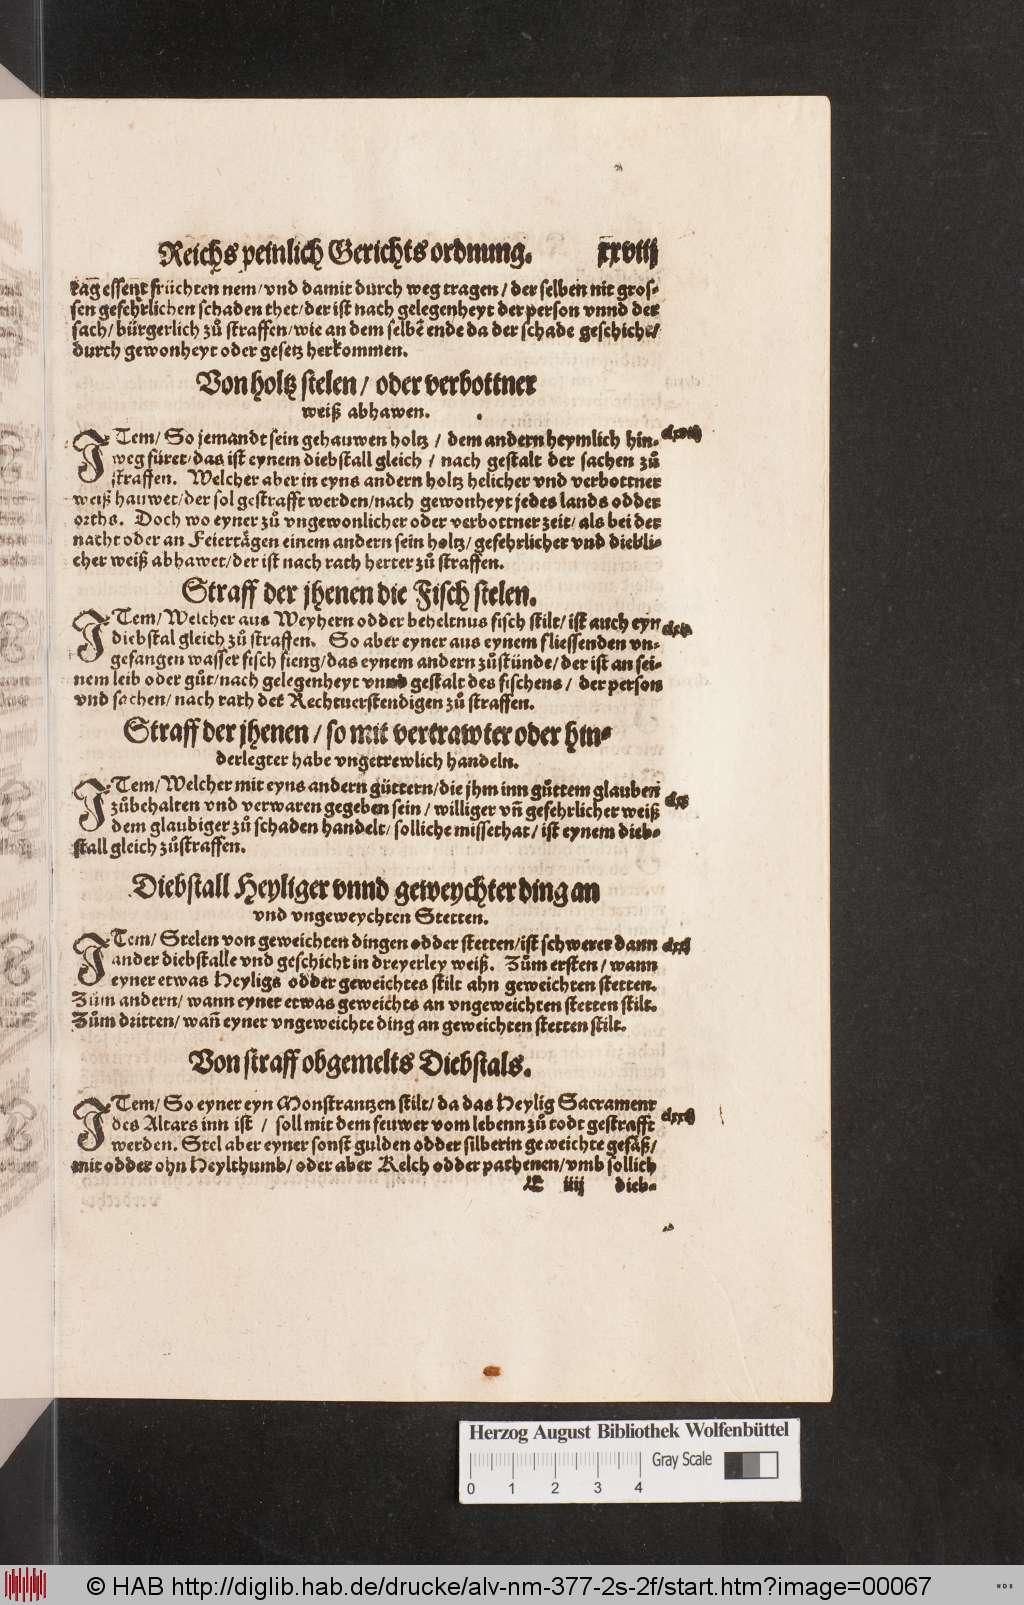 Reichs peinlich Gerichts ordnung. xxviij
tag essent früchten nem/ vnd damit durch weg tragen/ der selben nit gros-
sen gefehrlichen schaden thet/ der ist nach gelegenheyt der person vnnd der
sach/ bürgerlich zů straffen/ wie an dem selbē ende da der schade geschicht/
durch gewonheyt oder gesetz herkommen.
Von holtz stelen/ oder verbottner
weiß abhawen.
ITem/ So jemandt sein gehauwen holtz/ dem andern heymlich hin- clxviij
weg füret/ das ist eynem diebstall gleich/ nach gestalt der sachen zů
straffen. Welcher aber in eyns andern holtz helicher vnd verbottner
weiß hauwet/ der sol gestrafft werden/ nach gewonheyt jedes lands odder
orths. Doch wo eyner zů vngewonlicher oder verbottner zeit/ als bei der
nacht oder an Feiertägen einem andern sein holtz/ gefehrlicher vnd diebli-
cher weiß abhawet/ der ist nach rath herter zů straffen.
Straff der jhenen die Fisch stelen.
ITem/ Welcher aus Weyhern odder beheltnus fisch stilt/ ist auch eyn clxix
diebstal gleich zů straffen. So aber eyner aus eynem fliessenden vn-
gefangen wasser fisch fieng/ das eynem andern zůstünde/ der ist an sei-
nem leib oder gůt/ nach gelegenheyt vnnd gestalt des fischens/ der person
vnd sachen/ nach rath der Rechtuerstendigen zů straffen.
Straff der jhenen/ so mit vertrawter oder hin-
derlegter habe vngetrewlich handeln.
ITem/ Welcher mit eyns andern güttern/ die jhm inn gůttem glauben
zůbehalten vnd verwaren gegeben sein/ williger vñ gefehrlicher weiß clxx
dem glaubiger zů schaden handelt/ solliche missethat/ ist eynem dieb-
stall gleich zůstraffen.
Diebstall Heyliger vnnd geweychter ding an
vnd vngeweychten Stetten.
ITem/ Stelen von geweichten dingen odder stetten/ ist schwerer dann clxxj
ander diebstalle vnd geschicht in dreyerley weiß. Zům ersten/ wann
eyner etwas Heyligs odder geweichtes stilt ahn geweichten stetten.
Zům andern/ wann eyner etwas geweichts an vngeweichten stetten stilt.
Zům dritten/ wañ eyner vngeweichte ding an geweichten stetten stilt.
Von straff obgemelts Diebstals.
ITem/ So eyner eyn Monstrantzen stilt/ da das Heylig Sacrament
des Altars inn ist/ soll mit dem feuwer vom lebenn zů todt gestrafft clxxij
werden. Stel aber eyner sonst gulden odder silberin geweichte gefäß/
mit odder ohn Heylthumb/ oder aber Kelch odder pathenen/ vmb sollich
E iiij dieb-
Herzog August Bibliothek Wolfenbüttel
Gray Scale
0 1 2 3 4
© HAB http://diglib.hab.de/drucke/alv-nm-377-2s-2f/start.htm?image=00067